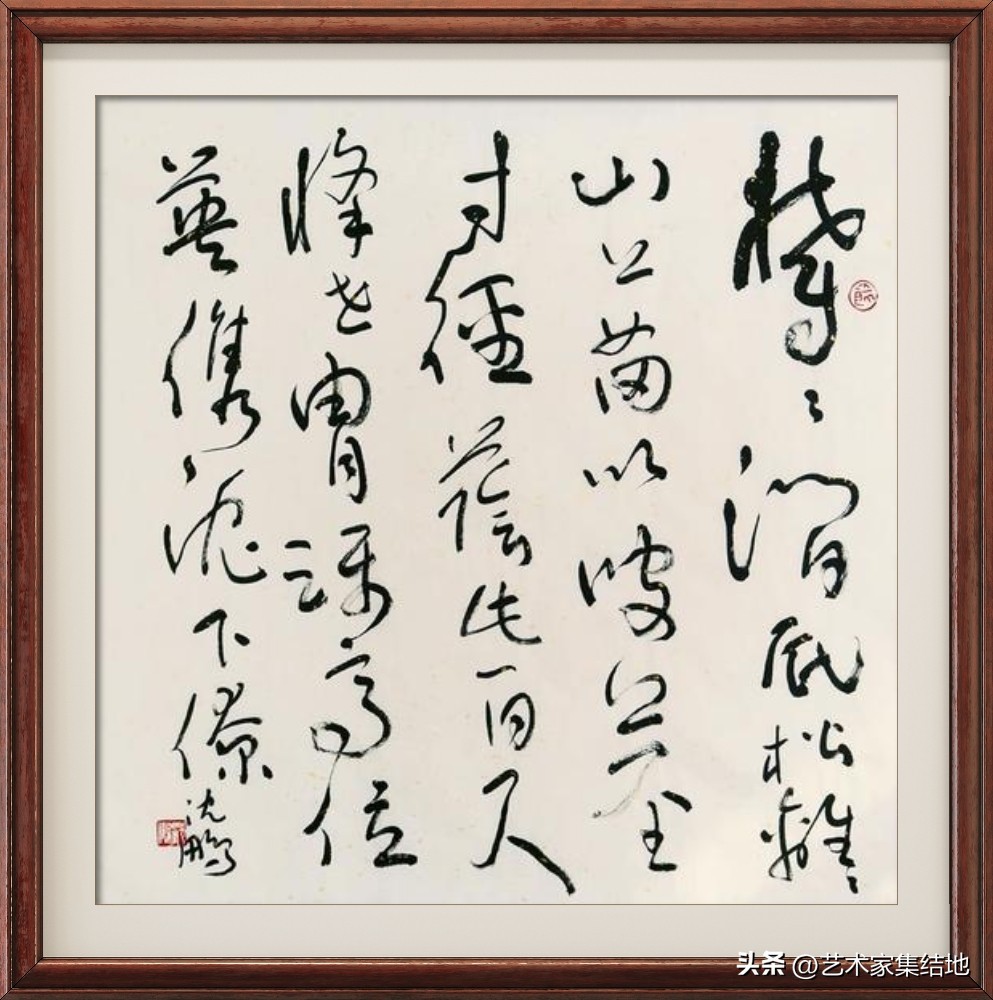 鬱々澗底松離々
山上苗以彼莖
寸徑蔭此百尺
條世胄躡高位
英儁沈下僚
沈鵬
头条 @艺术家集结地